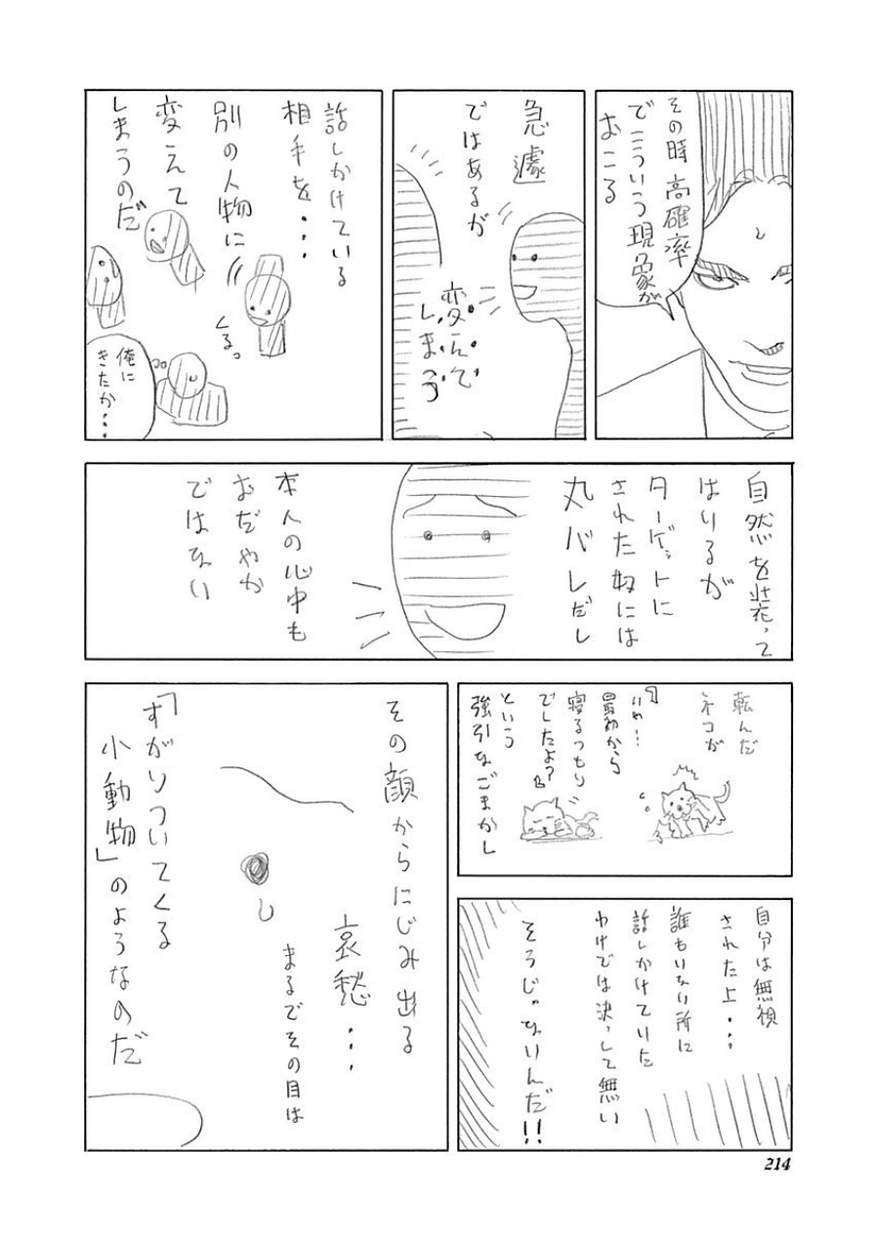 その時高確率
でこういう現象が
おこる
急遽
ではあるが
変えて
しまう
話しかけている
相手を・・・
別の人物に
変えて
しまうのだ
くるっ
俺に
きたか・・・
自然を装って
はいるが
ターゲットに
された奴には
丸バレだし
本人の心中も
おだやか
ではない
転んだ
ネコが
「いや…
最初から
寝るつもり
でしたよ?」
という
強引なごまかし
自分は無視
された上・・・
誰もいない所に
話しかけていた
わけでは決して無い
そうじゃないんだ!!
その顔からにじみ出る
哀愁・・・
まるでその目は
「すがりついてくる
小動物」のようなのだ
214